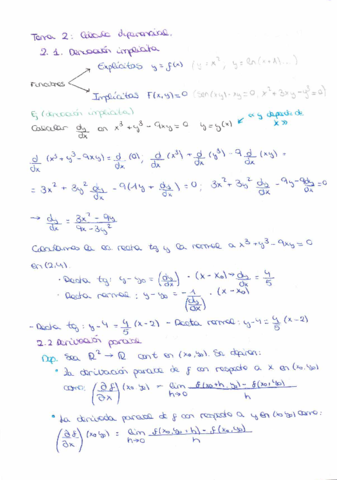 Tema 2: Cálculo diferencial.
2.1. Derivación implícita
Explícitas y=f(x) (y=x³, y=ln(x+x)...)
Funciones
Implícitas F(x,y)=0
Ej (derivación implícita)
Calcular dy/dx en x³+y³-9xy=0 y=y(x)
d/dx (x³+y³-9xy) = d/dx (0); d/dx (x³) + d/dx (y³) - 9 d/dx (xy) =
= 3x² + 3y² dy/dx - 9(1y + dy/dx) = 0; 3x² + 3y² dy/dx - 9y - 9 dy/dx = 0
→ dy/dx = 3x²-9y / 9x-3y²
la recta tg y la normal a x³+y³-9xy=0
en (2,4).
· Recta tg: y-y₀ = (dy/dx) · (x-x₀) → dy/dx = 4/5
· Recta normal: y-y₀ = -1/(dy/dx) · (x-x₀)
- Recta tg: y-4 = 4/5 (x-2) - Recta normal: y-4 = 4/5 (x-2)
2.2 Derivación parcial
Dep. Sea ℝ² → ℝ cont en (x₀,y₀). Se definen:
· la derivación parcial de f con respecto a x en (x₀,y₀)
como: (∂f/∂x)(x₀,y₀) = lim h→0 f(x₀+h, y₀) - f(x₀,y₀) / h
· La derivada parcial de f con respecto a y en (x₀,y₀) como:
(∂f/∂x)(x₀,y₀) = lim h→0 f(x₀,y₀+h) - f(x₀,y₀) / h